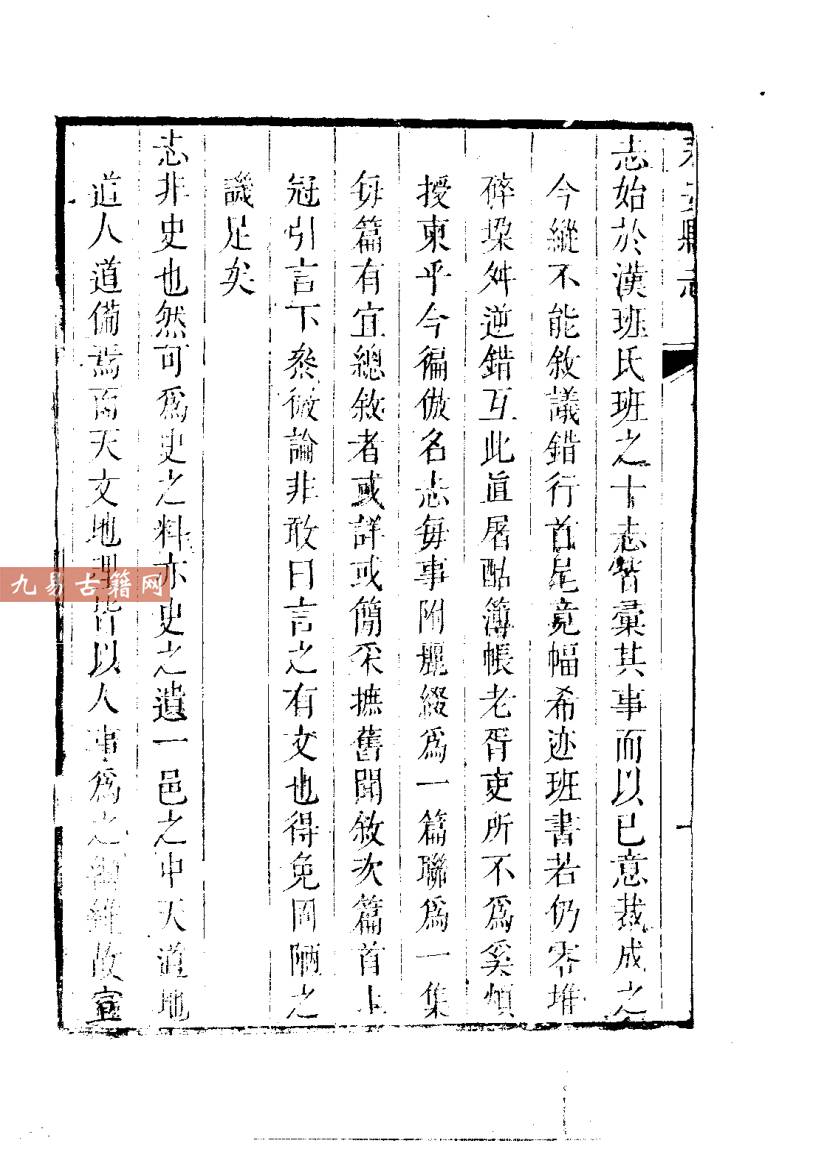 縣志
志始於漢班氏班之十志皆彙其事而以已意裁成之
今縱不能敘議錯行首尾竟幅希迹班書若仍零堆
碎垛舛逆錯互此眞屠酤簿帳老胥吏所不爲奚煩
授柬乎今徧倣名志每事附麗綴爲一篇聯爲一集
每篇有宜總敘者或詳或簡采摭舊聞敘次篇首上
冠引言下叅微論非敢曰言之有文也得免固陋之
譏足矣
志非史也然可爲史之料亦史之遺一邑之中天道地
道人道備焉而天文地理皆以人事爲之故宣
九易古籍网